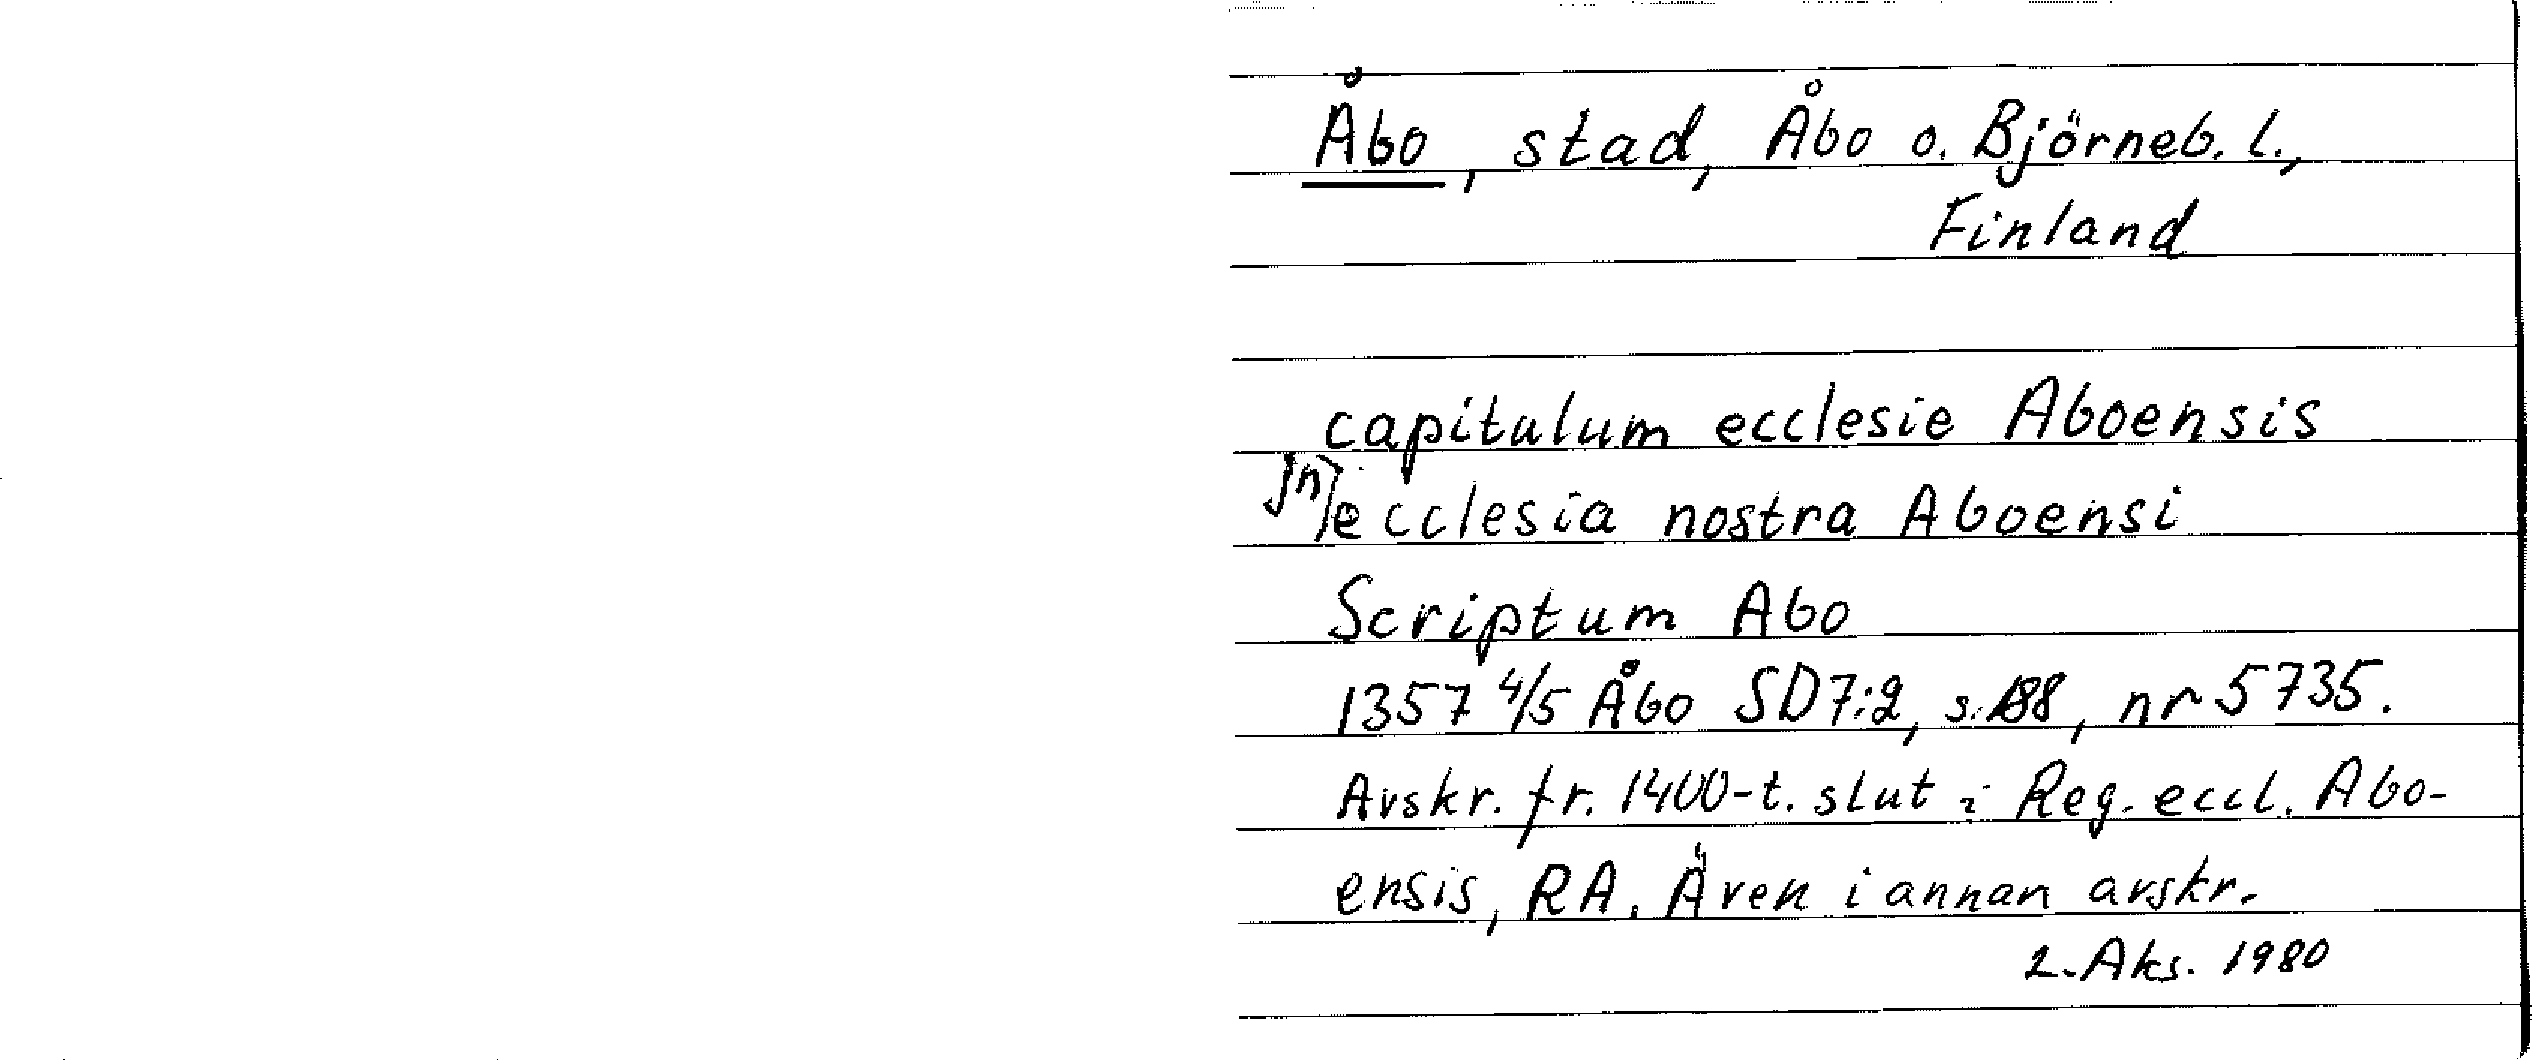 Åbo, stad, Åbo o. Björneb. l.,
Finland
capitulum ecclesie Aboensis
jn) ecclesia nostra Aboensi
Scriptum Abo
1357 4/5 Åbo SD7:2, s. 188, nr 5735.
Avskr. fr. 1400-t. slut i Reg. eccl. Abo-
ensis, RA. Även i annan avskr.
L. Aks. 1980